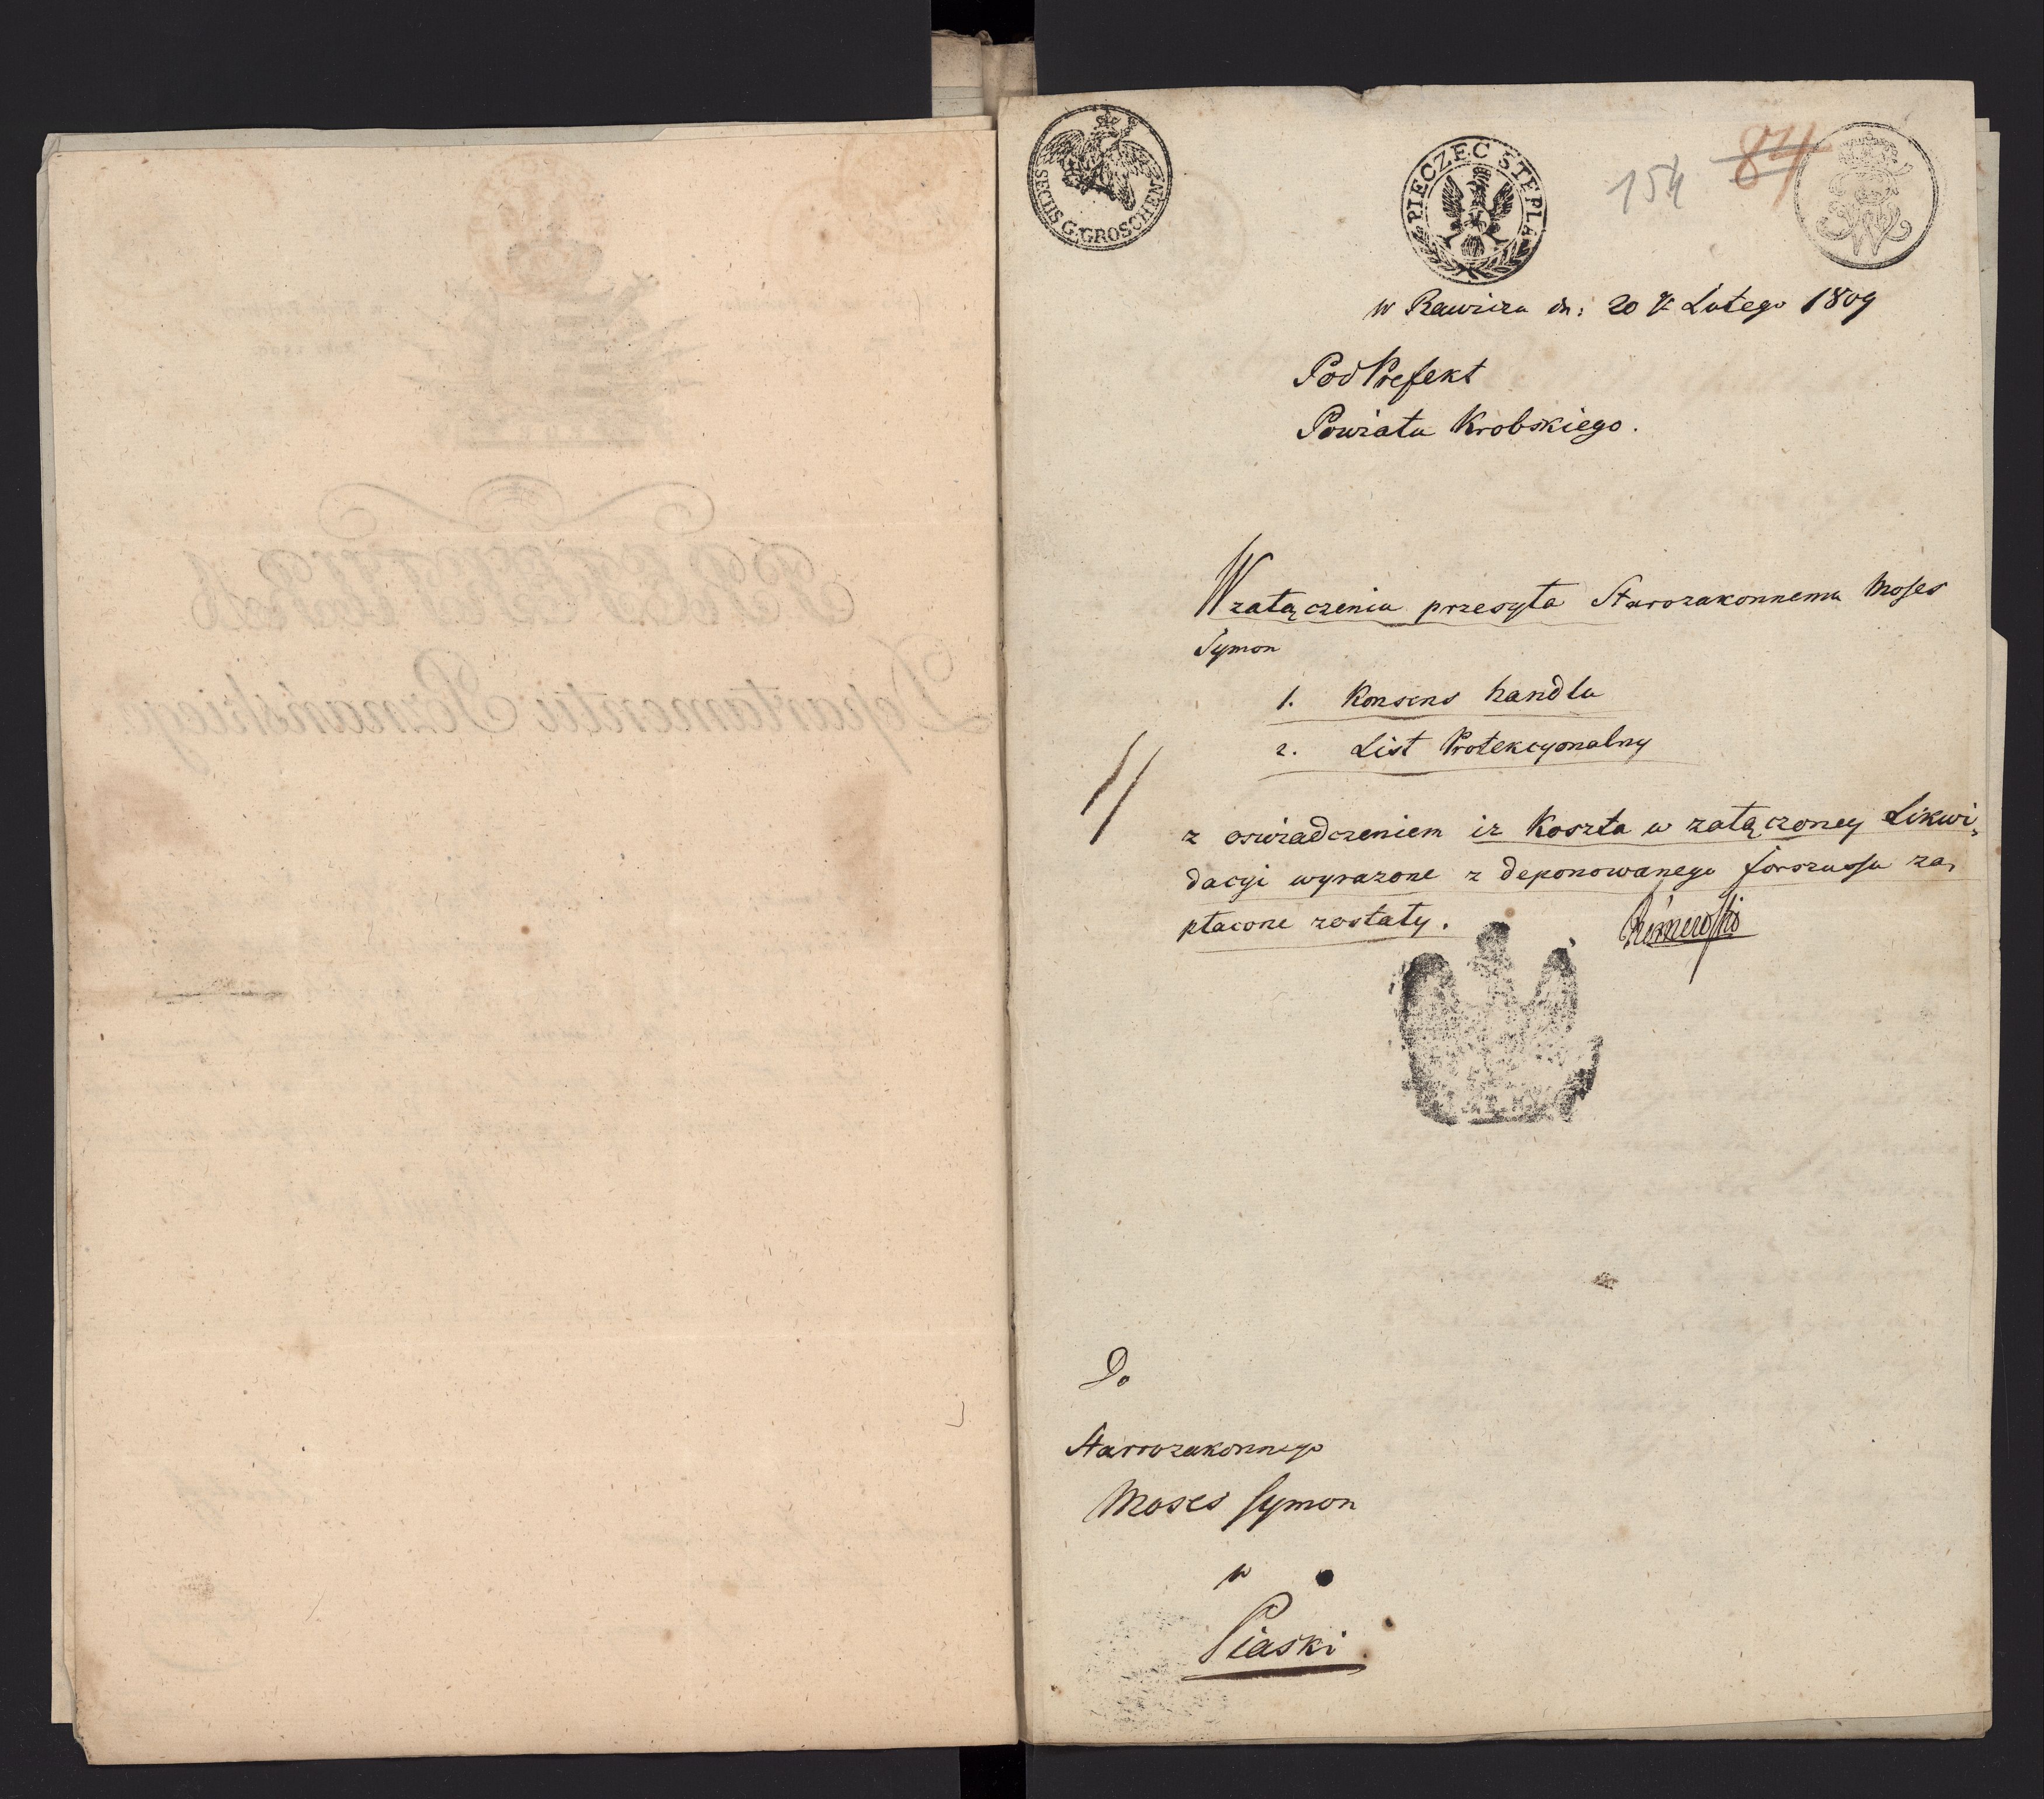 SECHS G. GROSCHEN
PIECZĘC STEPLA
154 84
w Rawiczu dn: 20 Lutego 1809
PodPrefekt
Powiatu Krobskiego.
W załączeniu przesyła Starozakonnemu Moses
Symon
1. Konsens handlu
2. List Protekcyonalny
z oswiadczeniem iz Koszta w załączoney Likwi„
dacyi wyrazone z deponowanego forszussu za„
płacone zostały.
Do
Starozakonnego
Moses Symon
w
Piaski
PREFEKTURA
Departamentu Poznańskiego